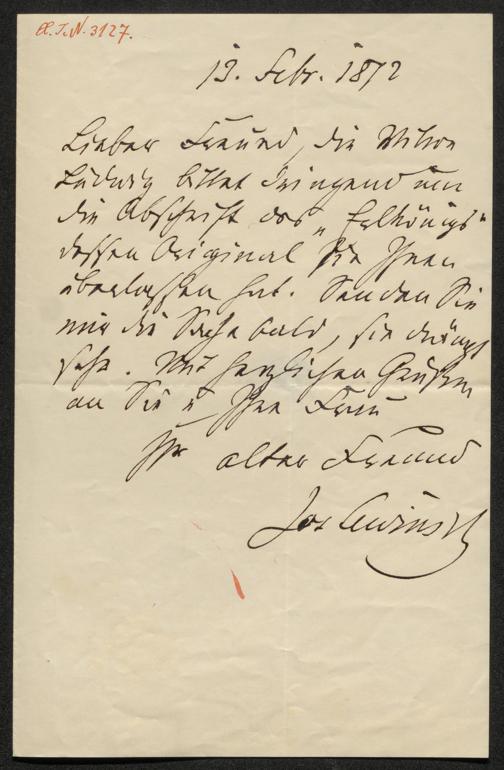 H. I. N. 3127.
13. Febr. 1872
Lieber Freund, die Witwe
Ludwig bittet dringend um
die Abschrift des „Erlkönigs“
dessen Original sie Ihnen
überlassen hat. Senden Sie
mir die Sache bald, sie drängt
sehr. Mit herzlichen Grüßen
an Sie u Ihre Frau
Ihr alter Freund
Jos Lewinsky